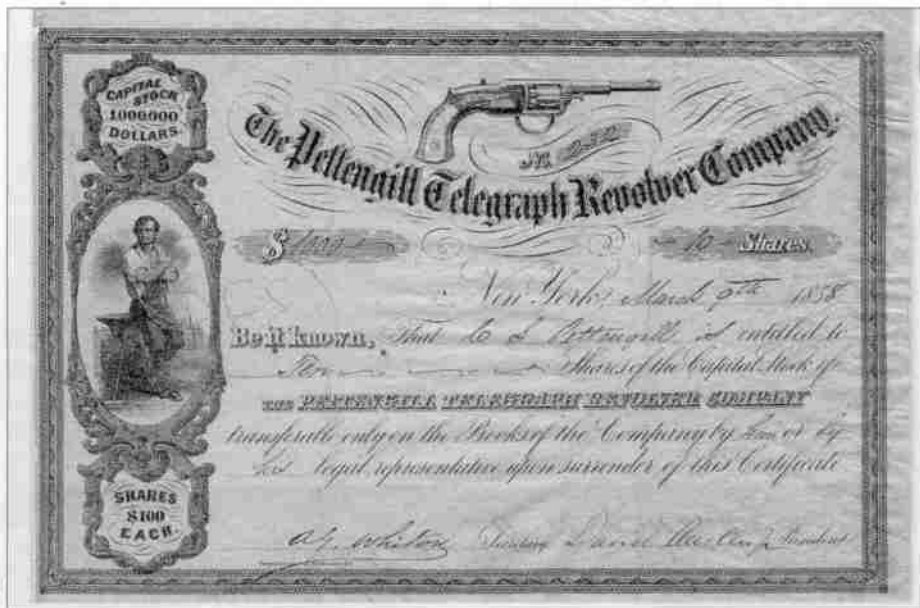 CAPITAL
STOCK
1000000
DOLLARS.
The Pettengill Telegraph Revolver Company.
$ 1000
10 Shares.
New York, March 9th 1858
Be it known, That C S Pettengill is entitled to
Ten Shares of the Capital Stock of
THE PETTENGILL TELEGRAPH REVOLVER COMPANY
transferable only on the Books of the Company by him or by
his legal representative upon surrender of this Certificate
SHARES
$100
EACH
Secretary David President